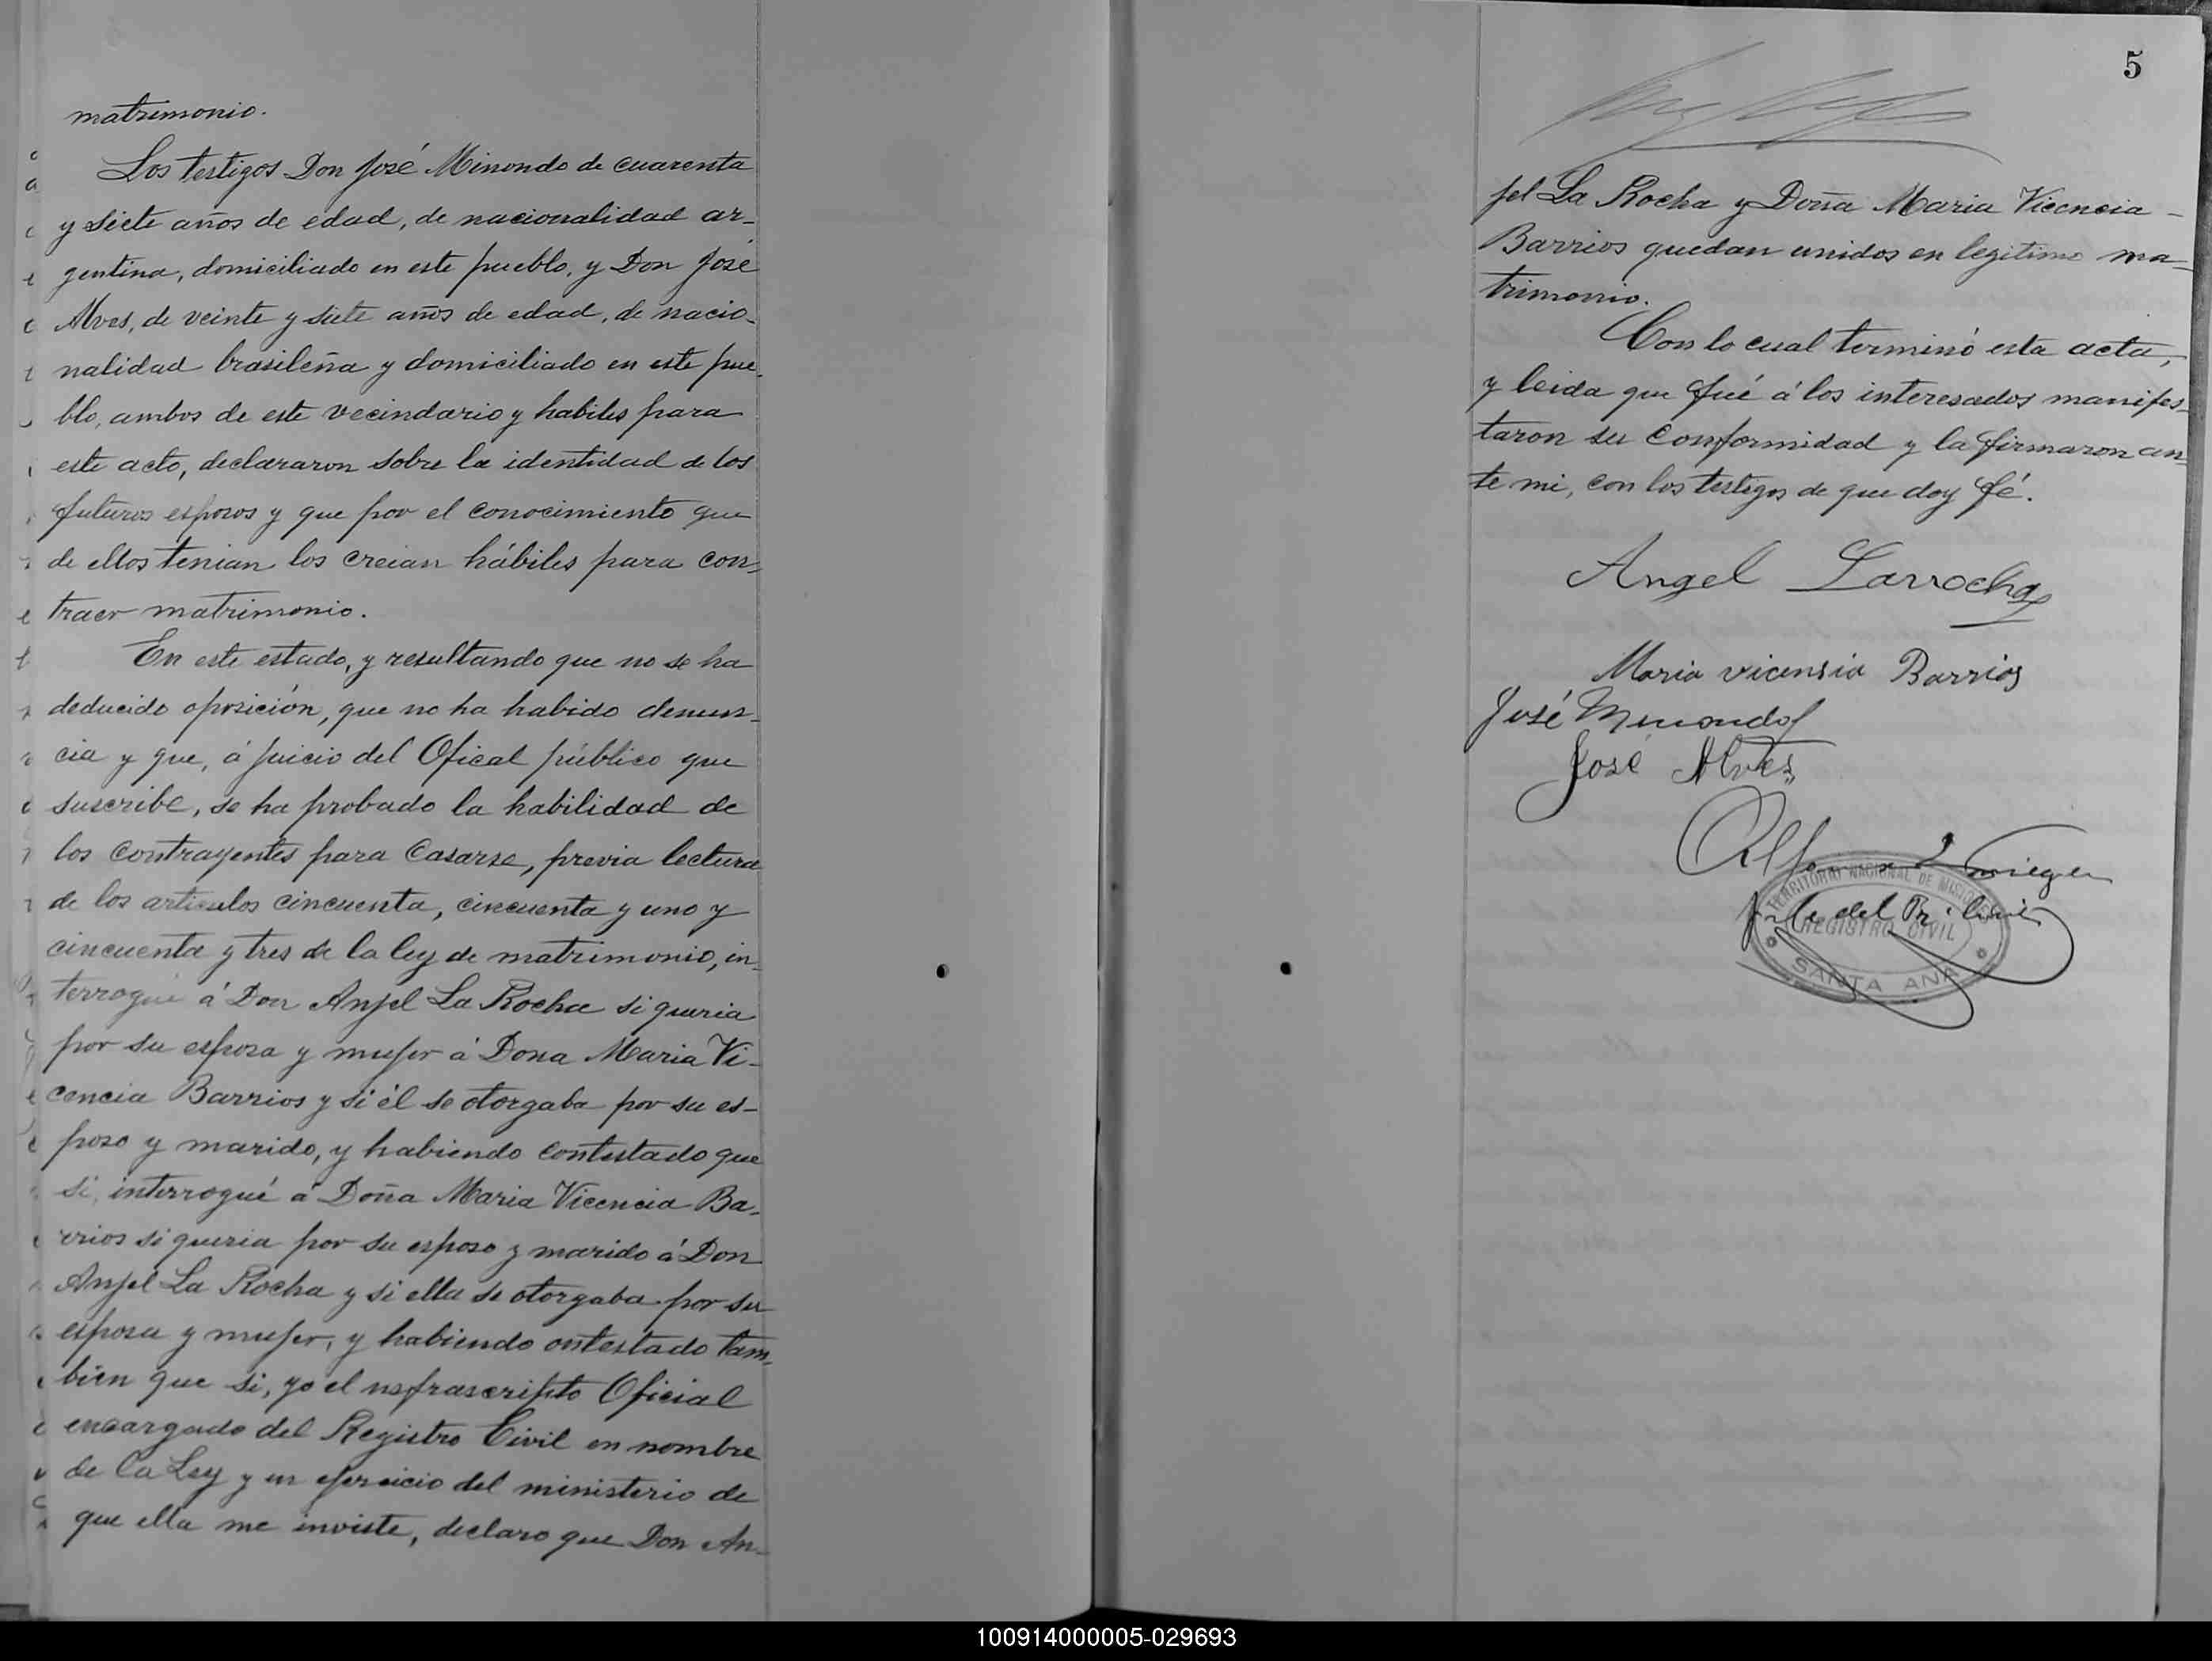 matrimonio.
Los testigos Don José Minondo de cuarenta
y siete años de edad, de nacionalidad ar-
gentina, domiciliado en este pueblo, y Don José
Alves, de veinte y siete años de edad, de nacio-
nalidad brasileña y domiciliado en este pue-
blo, ambos de este vecindario y habiles para
este acto, declararon sobre la identidad de los
futuros esposos y que por el conocimiento que
de ellos tenian los creian hábiles para con-
traer matrimonio.
En este estado, y resultando que no se ha
deducido oposición, que no ha habido denun-
cia y que, á juicio del Ofical público que
suscribe, se ha probado la habilidad de
los contrayentes para casarse, previa lectura
de los articulos cincuenta, cincuenta y uno y
cincuenta y tres de la ley de matrimonio, in-
terrogué á Don Anjel La Rocha si queria
por su esposa y mujer á Dona Maria Vi-
cencia Barrios y si él se otorgaba por su es-
poso y marido, y habiendo contestado que
si, interrogué á Doña Maria Vicencia Ba-
rrios si queria por su esposo y marido á Don
Anjel La Rocha y si ella se otorgaba por su
esposa y mujer, y habiendo ontestado tam-
bien que si, yo el nsfrascripto Oficial
encargado del Registro Civil en nombre
de la Ley y en ejercicio del ministerio de
que ella me inviste, declaro que Don An-
5
jel La Rocha y Doña Maria Vicencia -
Barrios quedan unidos en legitimo ma-
trimonio.
Con lo cual terminó esta acta,
y leida que fué á los interesados manifes-
taron su conformidad y la firmaron an-
te mi, con los testigos de que doy fé.
Angel Larrocha
Maria vicensia Barrios
José Minondo
José Alves
del
TERRITORIO NACIONAL DE MISIONES
REGISTRO CIVIL
SANTA ANA
100914000005-029693